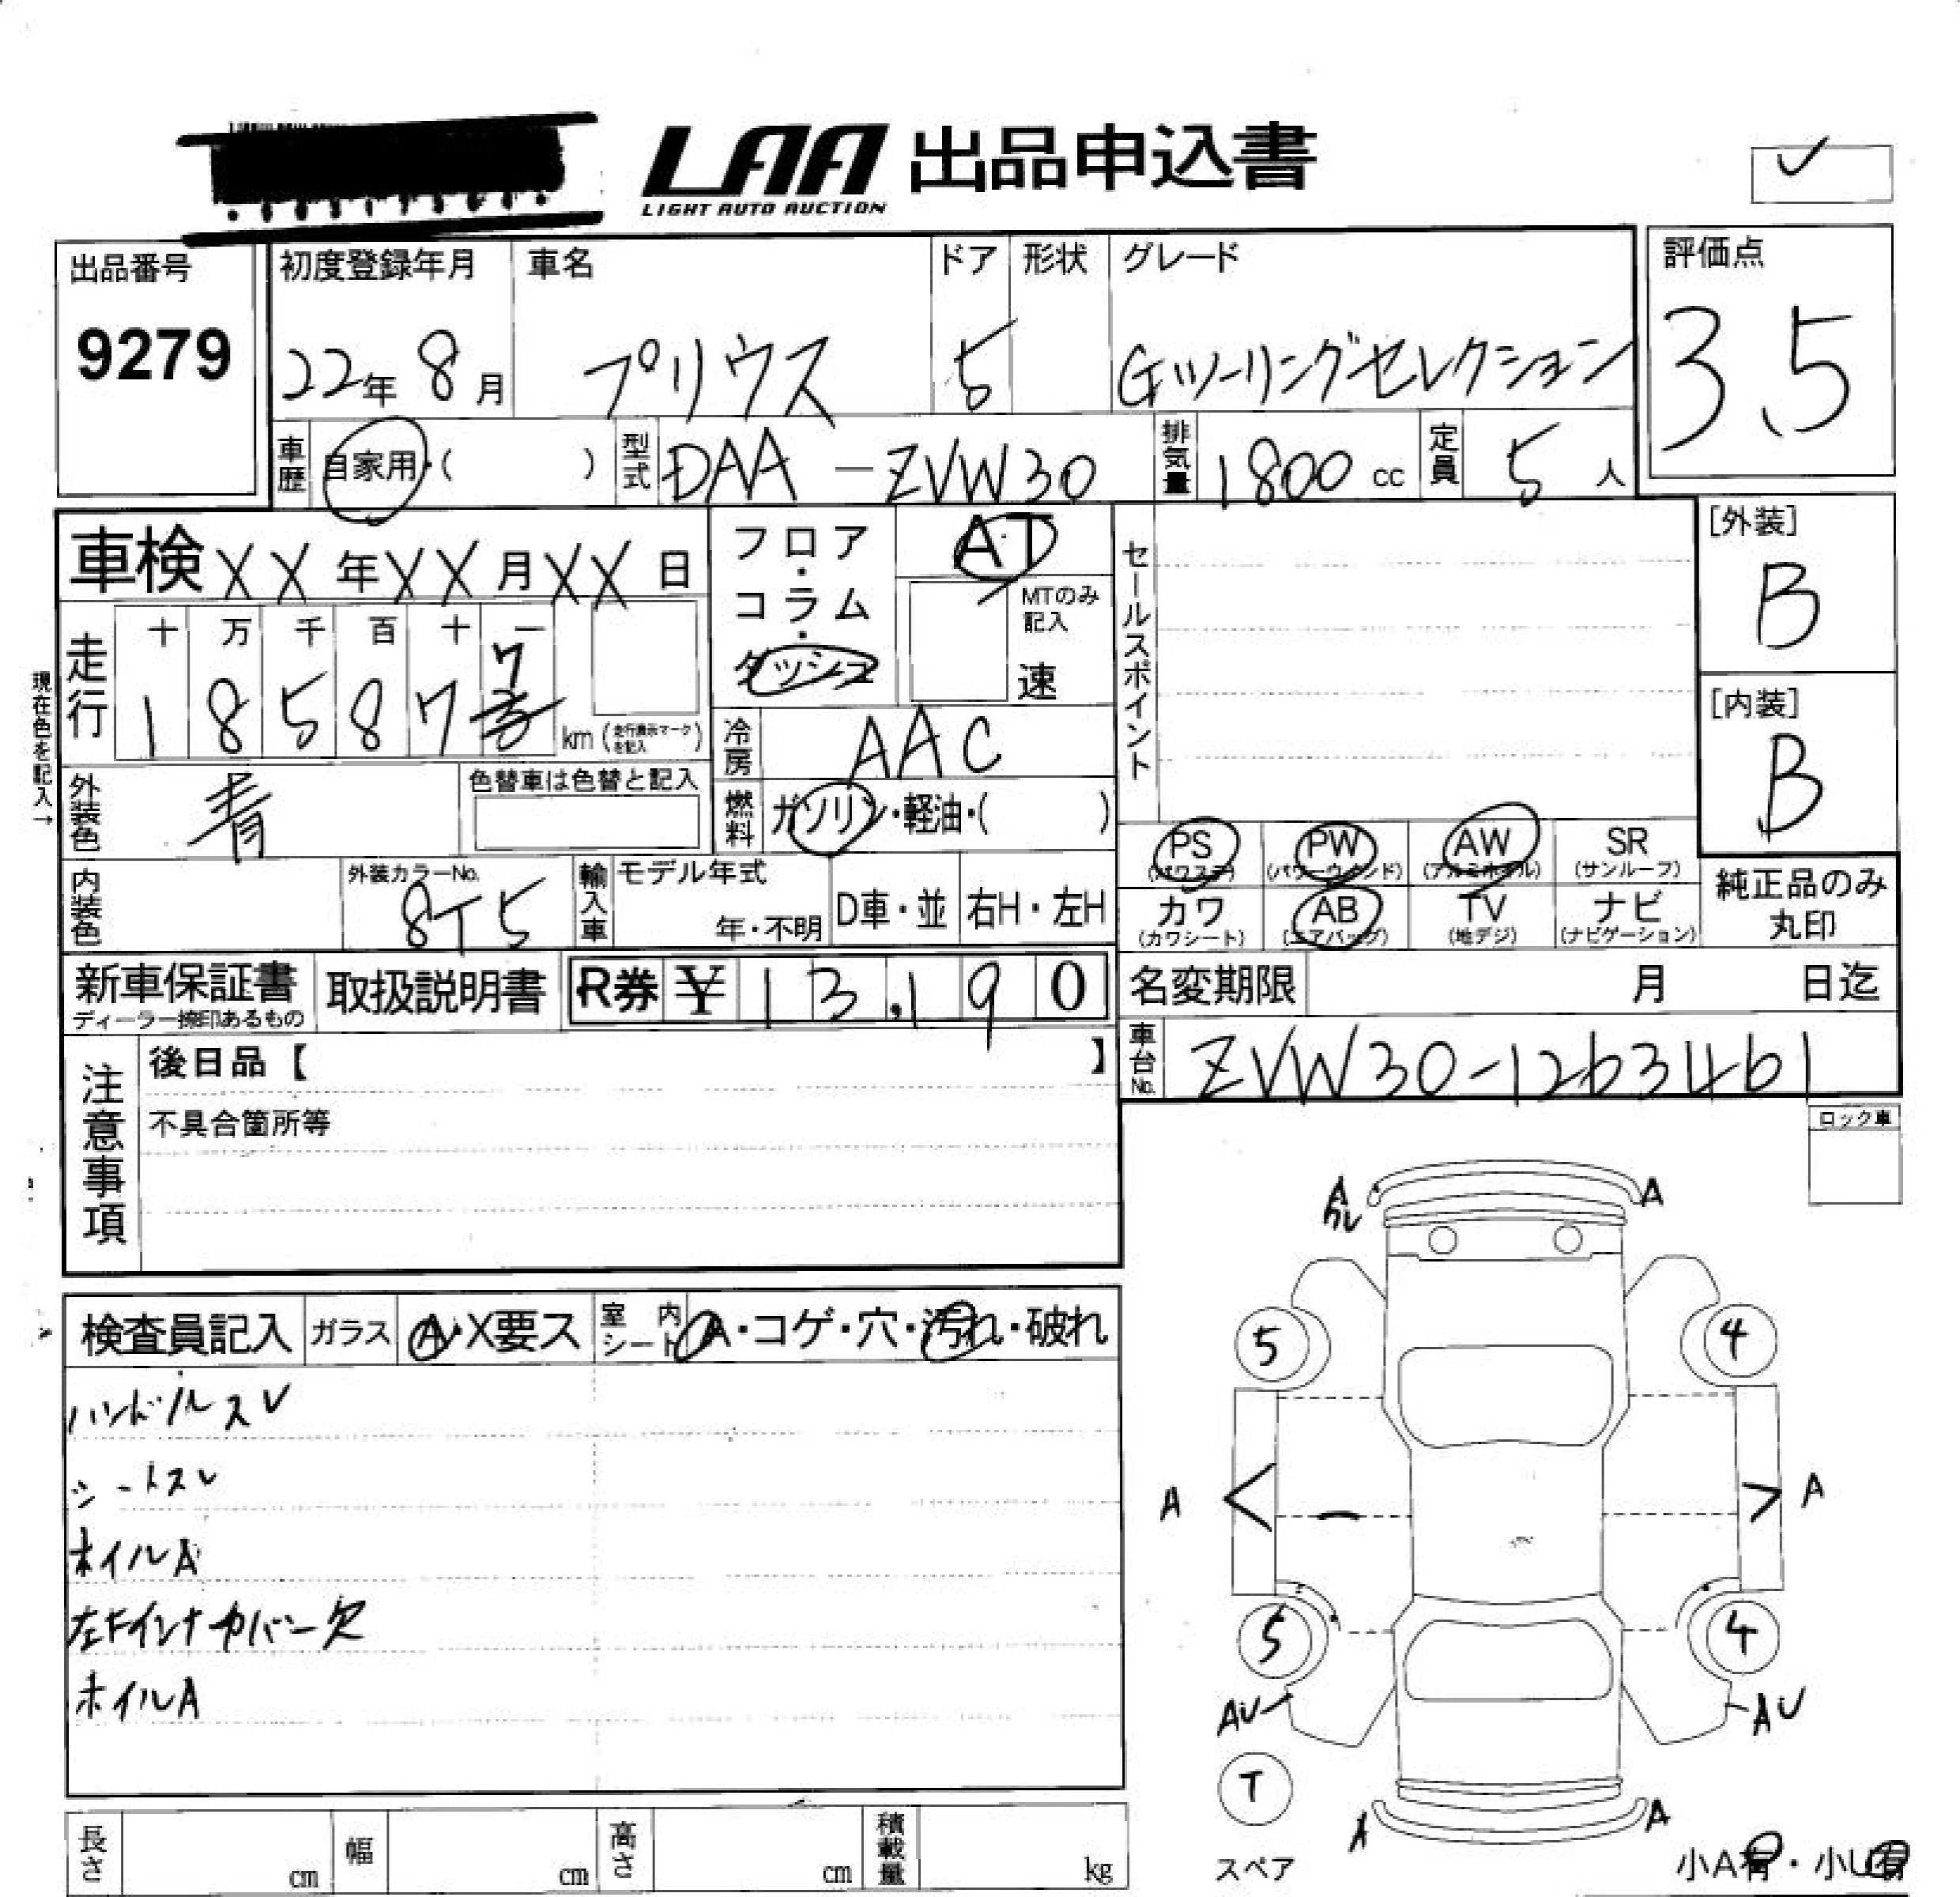 LAA 出品申込書
LIGHT AUTO AUCTION
出品番号
9279
初度登録年月
22年 8月
車名
プリウス
ドア
5
形状
グレード
Gツーリングセレクション
評価点
3.5
車歴 自家用・( )
型式 DAA-ZVW30
排気量 1800 cc
定員 5 人
車検 XX年XX月XX日
フロア・コラム・ダッシュ
AT
MTのみ記入
速
セールスポイント
[外装]
B
[内装]
B
現在色を記入→
走行
十 万 千 百 十 一
1 8 5 8 7 7
km (走行表示マークを記入)
冷房 AAC
外装色 青
色替車は色替と記入
燃料 ガソリン・軽油・( )
内装色
外装カラーNo.
8T5
輸入車
モデル年式
年・不明
D車・並
右H・左H
PS (パワステ)
PW (パワーウインド)
AW (アルミホイル)
SR (サンルーフ)
カワ (カワシート)
AB (エアバッグ)
TV (地デジ)
ナビ (ナビゲーション)
純正品のみ
丸印
新車保証書
ディーラー捺印あるもの
取扱説明書
R券 ¥ 13,190
名変期限 月 日迄
車台No. ZVW30-1263461
注意事項
後日品【 】
不具合箇所等
ロック車
検査員記入
ガラス A・X要ス
室内シート A・コゲ・穴・汚れ・破れ
ハンドルスレ
シートスレ
ホイルA
左Fインナカバー欠
ホイルA
A
A
5
4
A
A
5
4
AU
AU
T
スペア
A
A
小A有・小U有
長さ cm
幅 cm
高さ cm
積載量 kg